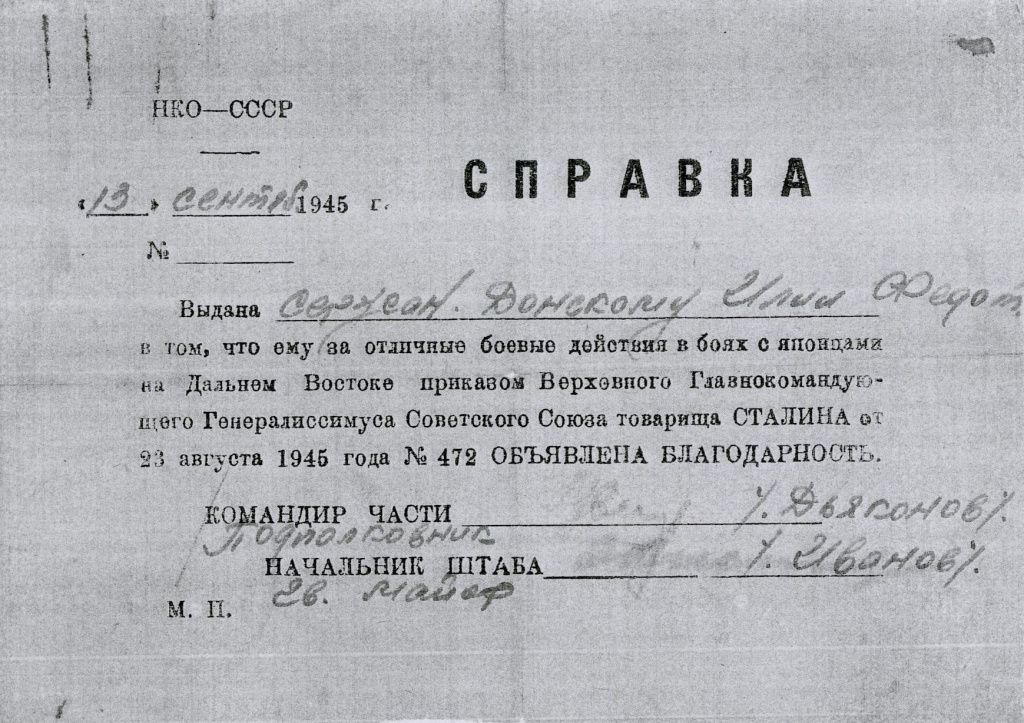 НКО—СССР
СПРАВКА
«13» сентяб 1945 г.
№
Выдана сержан. Донскому Илии Федот.
в том, что ему за отличные боевые действия в боях с японцами
на Дальнем Востоке приказом Верховного Главнокомандую-
щего Генералиссимуса Советского Союза товарища СТАЛИНА от
23 августа 1945 года № 472 ОБЪЯВЛЕНА БЛАГОДАРНОСТЬ.
КОМАНДИР ЧАСТИ /. Дьяконов/.
Подполковник
НАЧАЛЬНИК ШТАБА /. Иванов/.
гв. майор
М. П.